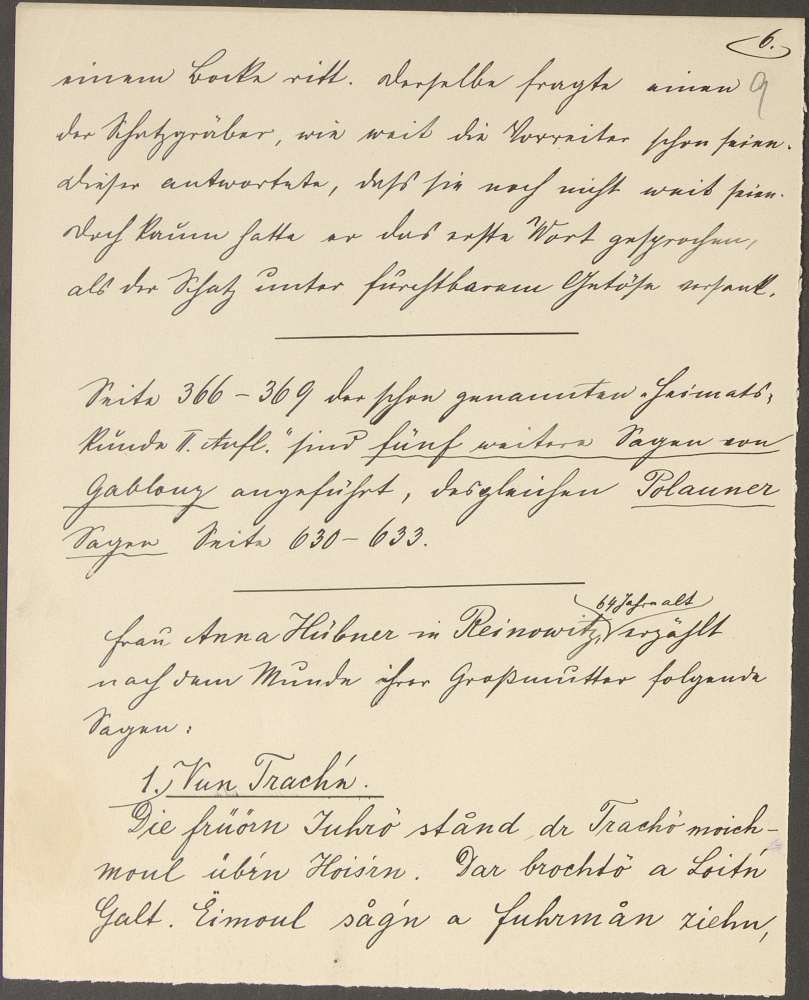 6.
9
einem Bocke ritt. Derselbe fragte einen
der Schatzgräber, wie weit die Vorreiter schon seien.
Dieser antwortete, dass sie noch nicht weit seien.
Doch kaum hatte er das erste Wort gesprochen,
als der Schatz unter furchtbarem Getöse versank.
Seite 366 – 369 der schon genannten „Heimats-
kunde II. Aufl." sind fünf weitere Sagen von
Gablonz angeführt, desgleichen Polauner
Sagen Seite 630 – 633.
64 Jahre alt
Frau Anna Hübner in Reinowitz, erzählt
nach dem Munde ihrer Großmutter folgende
Sagen:
1.) Vun Trach'n.
Die früörn Juhrö stånd dr Trachö moich-
moul üb'n Hois'rn. Dar brochtö a Loit'n
Galt. Eimoul såg'n a Fuhrmån ziehn,